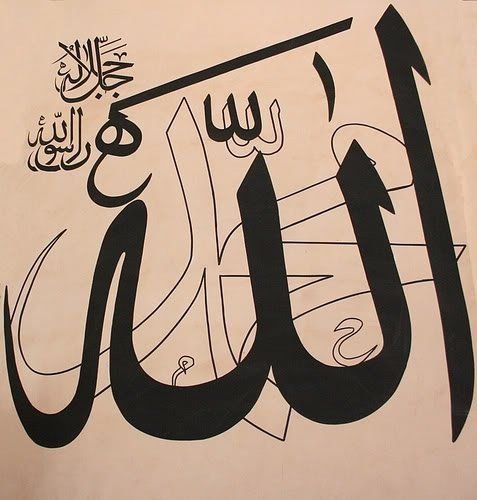 الله
جل جلاله
محمد
رسول الله